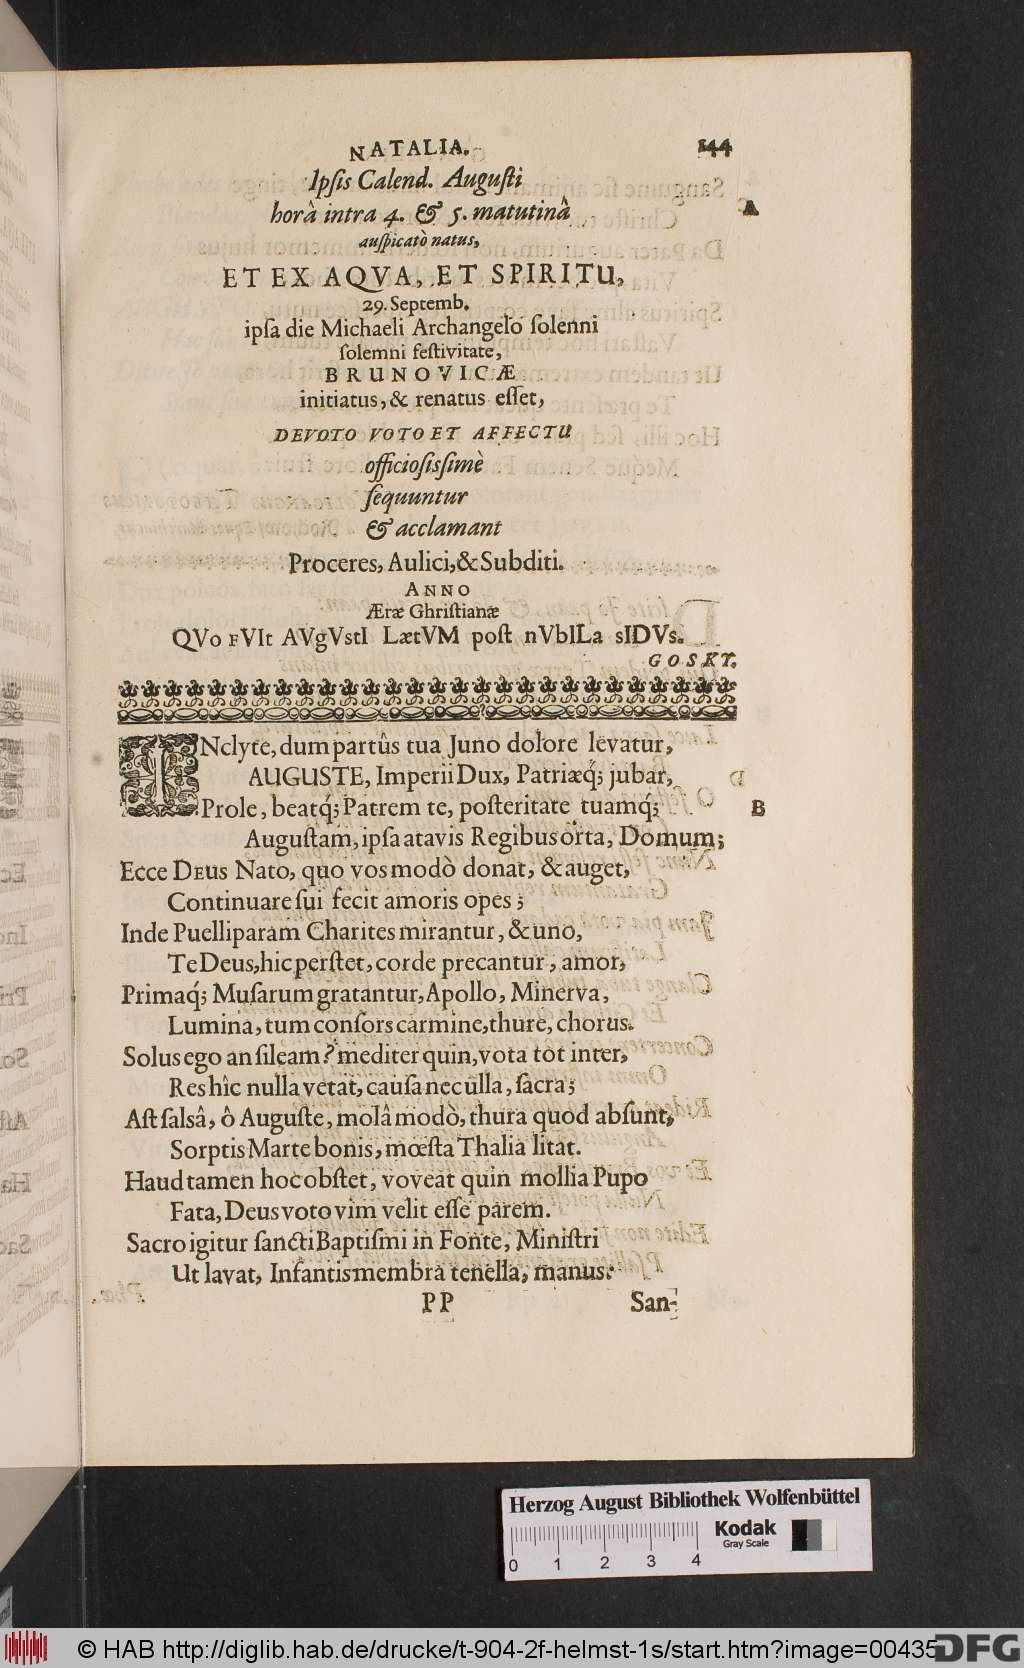 NATALIA. 144
Ipſis Calend. Auguſti
horâ intra 4. & 5. matutinâ A
auſpicatò natus,
ET EX AQVA, ET SPIRITU,
29. Septemb.
ipſa die Michaeli Archangelo ſolenni
ſolemni feſtivitate,
BRUNOVICÆ
initiatus, & renatus eſſet,
DEVOTO VOTO ET AFFECTU
officioſisſimè
ſequuntur
& acclamant
Proceres, Aulici, & Subditi.
ANNO
Æræ Ghriſtianæ
QVo FVIt AVgVstI LætVM poſt nVbILa sIDVs.
GOSKY.
INclyte, dum partûs tua Juno dolore levatur,
AUGUSTE, Imperii Dux, Patriæq́; jubar,
Prole, beatq́; Patrem te, poſteritate tuamq́; B
Auguſtam, ipſa atavis Regibus orta, Domum;
Ecce DEus Nato, quo vos modò donat, & auget,
Continuare ſui fecit amoris opes;
Inde Puelliparam Charites mirantur, & uno,
Te Deus, hic perſtet, corde precantur, amor,
Primaq́; Muſarum gratantur, Apollo, Minerva,
Lumina, tum conſors carmine, thure, chorus.
Solus ego an ſileam? mediter quin, vota tot inter,
Res hîc nulla vetat, cauſa nec ulla, ſacra;
Aſt ſalsâ, ô Auguſte, molâ modò, thura quod abſunt,
Sorptis Marte bonis, mœſta Thalia litat.
Haud tamen hoc obſtet, voveat quin mollia Pupo
Fata, Deus voto vim velit eſſe parem.
Sacro igitur ſancti Baptiſmi in Fonte, Miniſtri
Ut lavat, Infantis membra tenella, manus:
PP San-
Herzog August Bibliothek Wolfenbüttel
Kodak
Gray Scale
0 1 2 3 4
© HAB http://diglib.hab.de/drucke/t-904-2f-helmst-1s/start.htm?image=00435
DFG